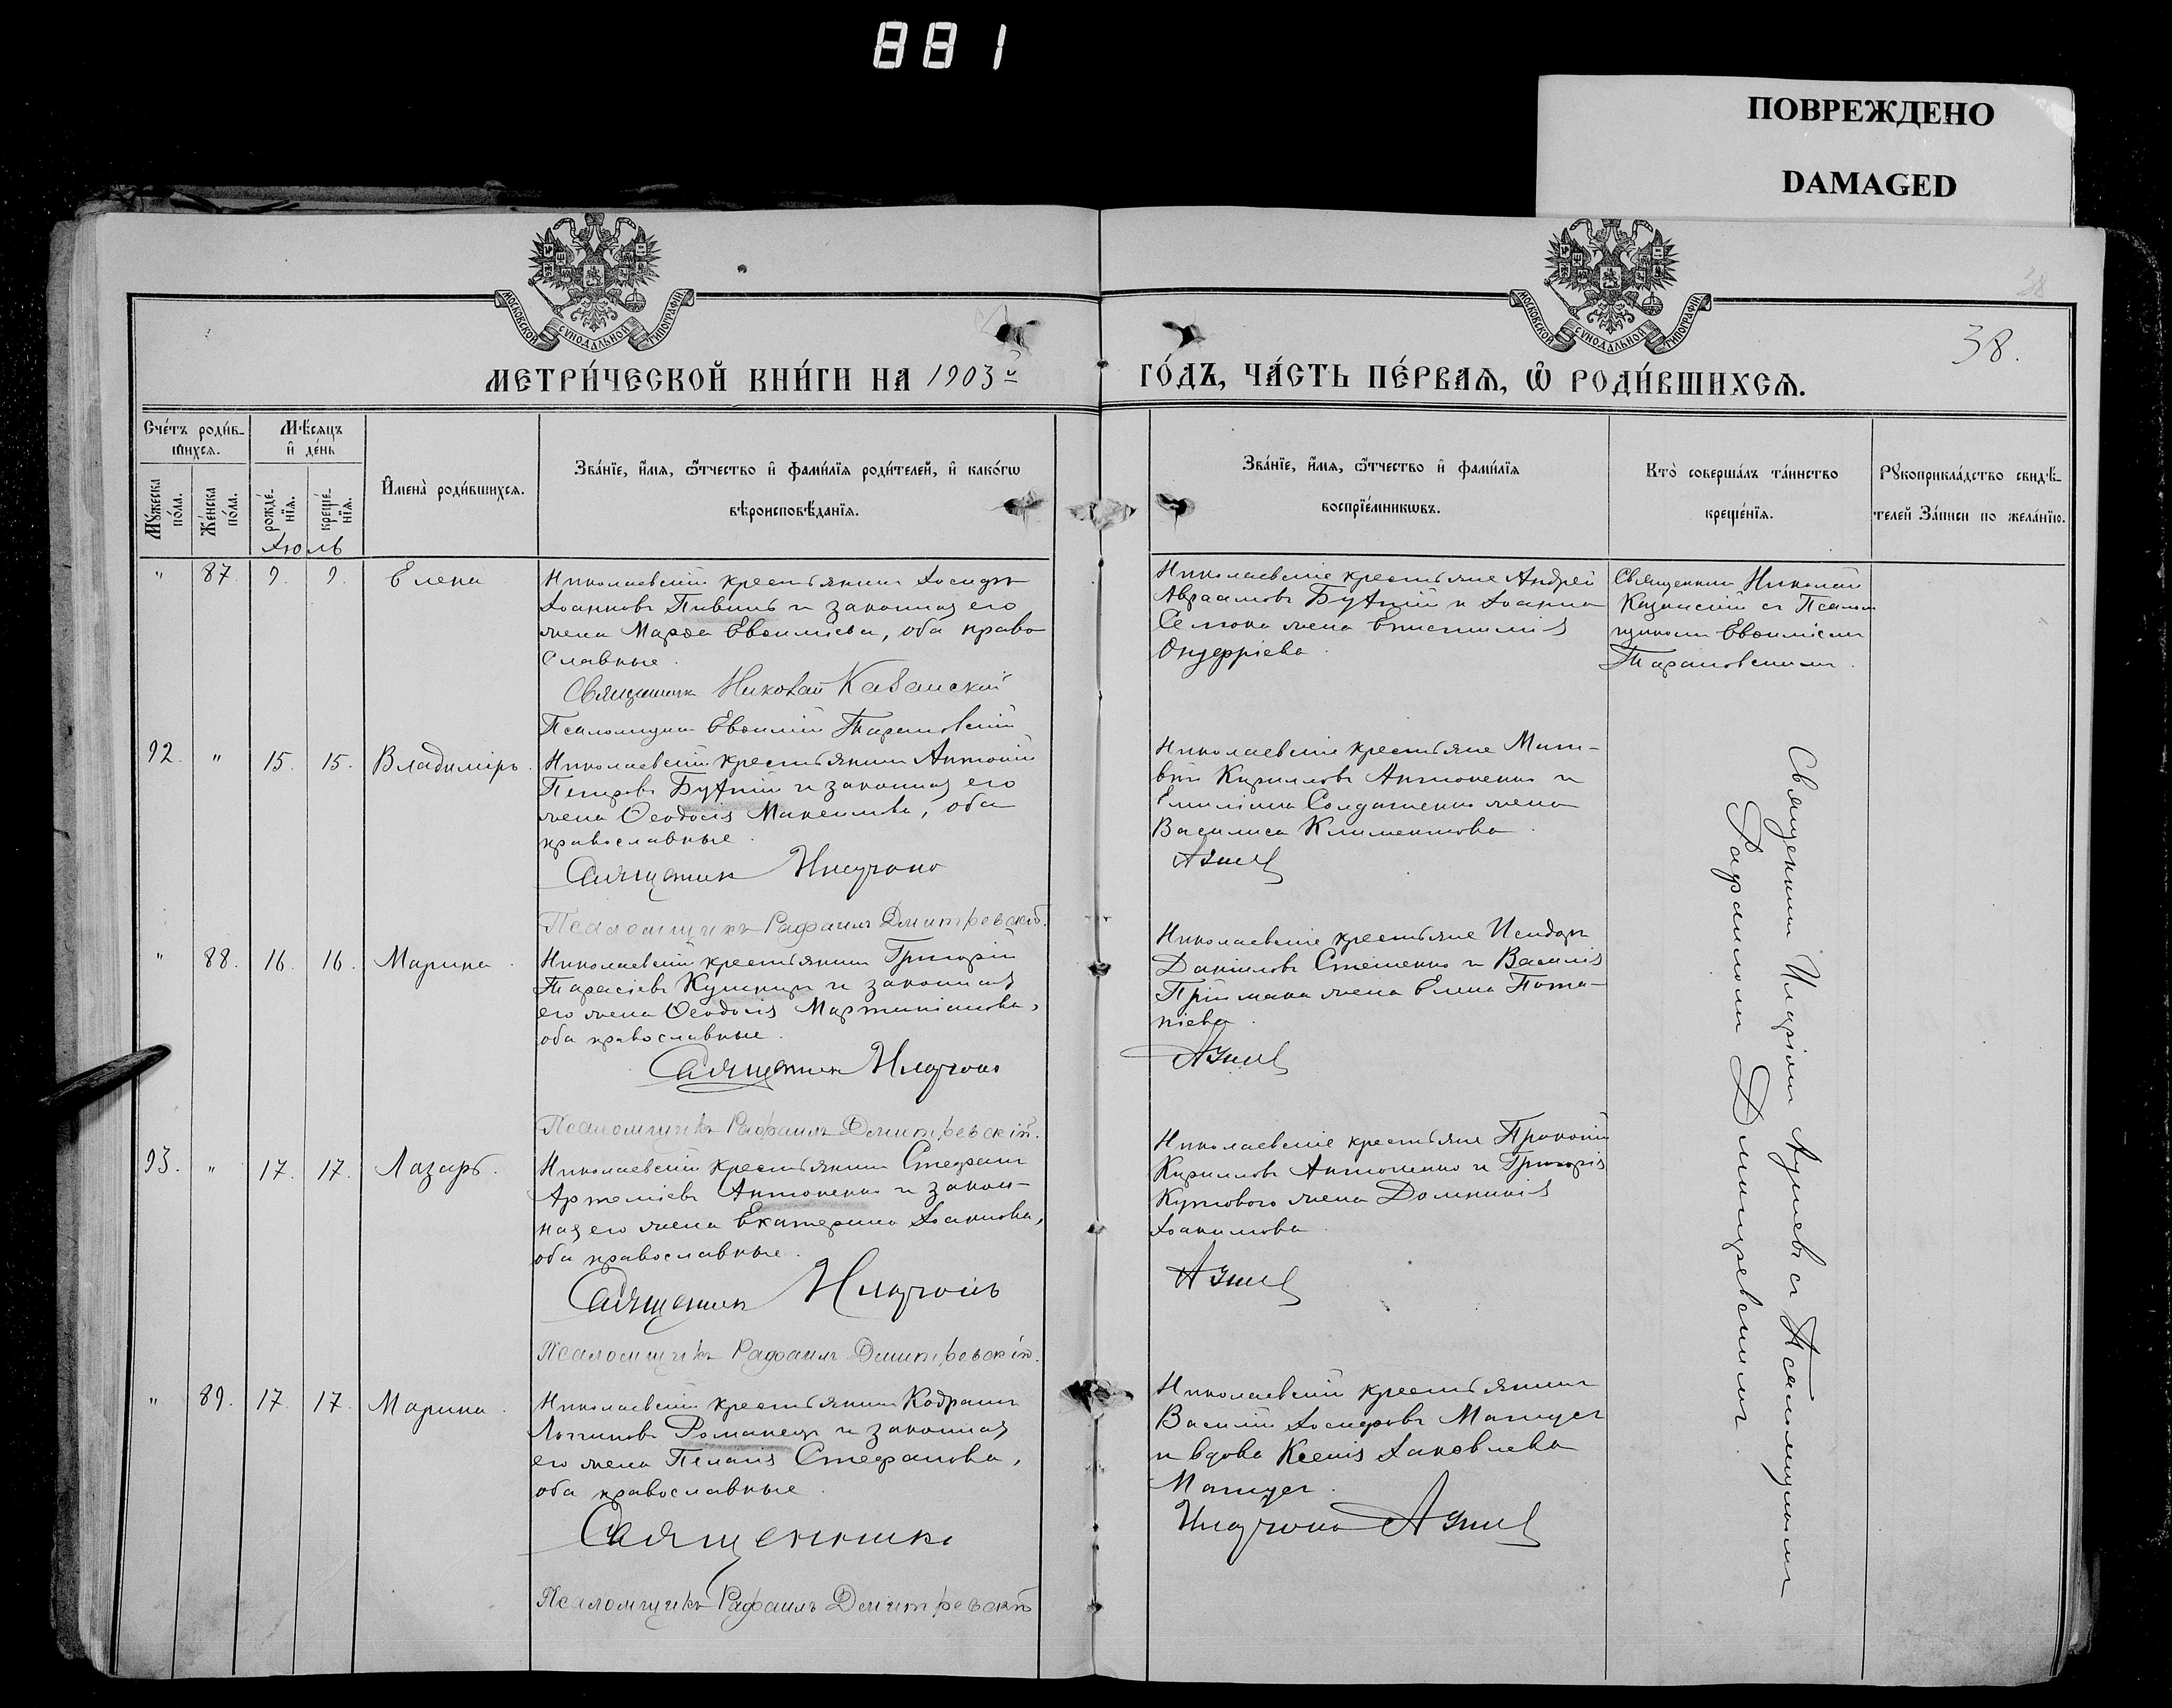 881
ПОВРЕЖДЕНО
DAMAGED
МОСКОВСКОЙ СѴНОДАЛЬНОЙ ТИПОГРАФІИ
МОСКОВСКОЙ СѴНОДАЛЬНОЙ ТИПОГРАФІИ
38
38.
МЕТРИ́ЧЕСКОЙ КНИ́ГИ НА 1903й
ГО́ДЪ, ЧА́СТЬ ПЕ́РВАѦ, Ѽ РОДИ́ВШИХСѦ.
Сче́тъ роди́в-
шихся.
Мѣсяцъ
и҆ де́нь
Мꙋ́жеска по́ла.
Же́нска по́ла.
рожде́-
нїя.
креще́-
нїя.
И҆мена̀ роди́вшихся.
Зва́нїе, и҆́мя, ѻ҆́тчество и҆ фами́лїя роди́телей, и҆ како́гѡ
вѣроисповѣ́данїя.
Зва́нїе, и҆́мя, ѻ҆́тчество и҆ фами́лїя
воспрїе́мникѡвъ.
Кто̀ соверша́лъ та́инство
креще́нїя.
Рꙋкоприкла́дство свидѣ́-
телей За́писи по жела́нїю.
Іюль
" 87. 9. 9. Елена
Николаевскій крестьянинъ Іосифъ
Іоанновъ Пивень и законная его
жена Марѳа Евѳиміева, оба право
славные.
Священникъ Николай Казанскій
Псаломщикъ Евѳимій Тарановскій
Николаевскіе крестьяне Андрей
Авраамовъ Бутній и Іоанна
жена Епистимія
Онуфріева.
Священникъ Николай
Казанскій съ Псалом
щикомъ Евѳиміемъ
Тарановскимъ.
92. " 15. 15. Владиміръ.
Николаевскій крестьянинъ Антоній
Петровъ Бутній и законная его
жена Ѳеодосія Максимова, оба
православные.
Священник
Псаломщикъ Рафаилъ Дмитревскій.
Николаевскіе крестьяне Мат-
вѣй Кирилловъ Антоненко и
Емиліана Солдатенко жена
Василиса Климентова.
" 88. 16. 16. Марина.
Николаевскій крестьянинъ Григорій
Тарасіевъ и законная
его жена Ѳеодосія Мартиніанова,
оба православные.
Священник
Псаломщикъ Рафаилъ Дмитревскій.
Николаевскіе крестьяне Исидоръ
Даніиловъ Стешенко и Василія
Пріймака жена Елена Пота-
піева.
93. " 17. 17. Лазарь.
Николаевскій крестьянинъ Стефанъ
Артеміевъ Антоненко и закон-
ная его жена Екатерина Іоаннова,
оба православные.
Священник
Псаломщикъ Рафаилъ Дмитревскій.
Николаевскіе крестьяне Прокопій
Кирилловъ Антоненко и Григорія
Кутового жена Домникія
Іоакимова
" 89. 17. 17. Марина.
Николаевскій крестьянинъ Кодратъ
Логгиновъ Романецъ и законная
его жена Пелагія Стефанова,
оба православные.
Священникъ
Псаломщикъ Рафаилъ Дмитревскій
Николаевскій крестьянинъ
Василій Іосифовъ Мануец
и вдова Ксенія Іаковлева
Мануец.
Священникъ Иларіонъ съ Псаломщикомъ
Рафаиломъ Дмитревскимъ.